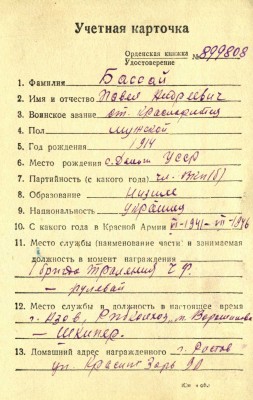 Учетная карточка
Орденская книжка
Удостоверение № 899808
1. Фамилия Бассай
2. Имя и отчество Павел Андреевич
3. Воинское звание ст. краснофлотец
4. Пол мужской
5. Год рождения 1914
6. Место рождения с. УССР
7. Партийность (с какого года) чл. ВКП(б)
8. Образование низшее
9. Национальность украинец
10. С какого года в Красной Армии VI-1941- VII-1946
11. Место службы (наименование части) и занимаемая
должность в момент награждения
Бригада Траления Ч.Ф.
— рулевой
12. Место службы и должность в настоящее время
г. Азов,
— Шкипер.
13. Домашний адрес награжденного г. Ростов
ул. Красных Зорь